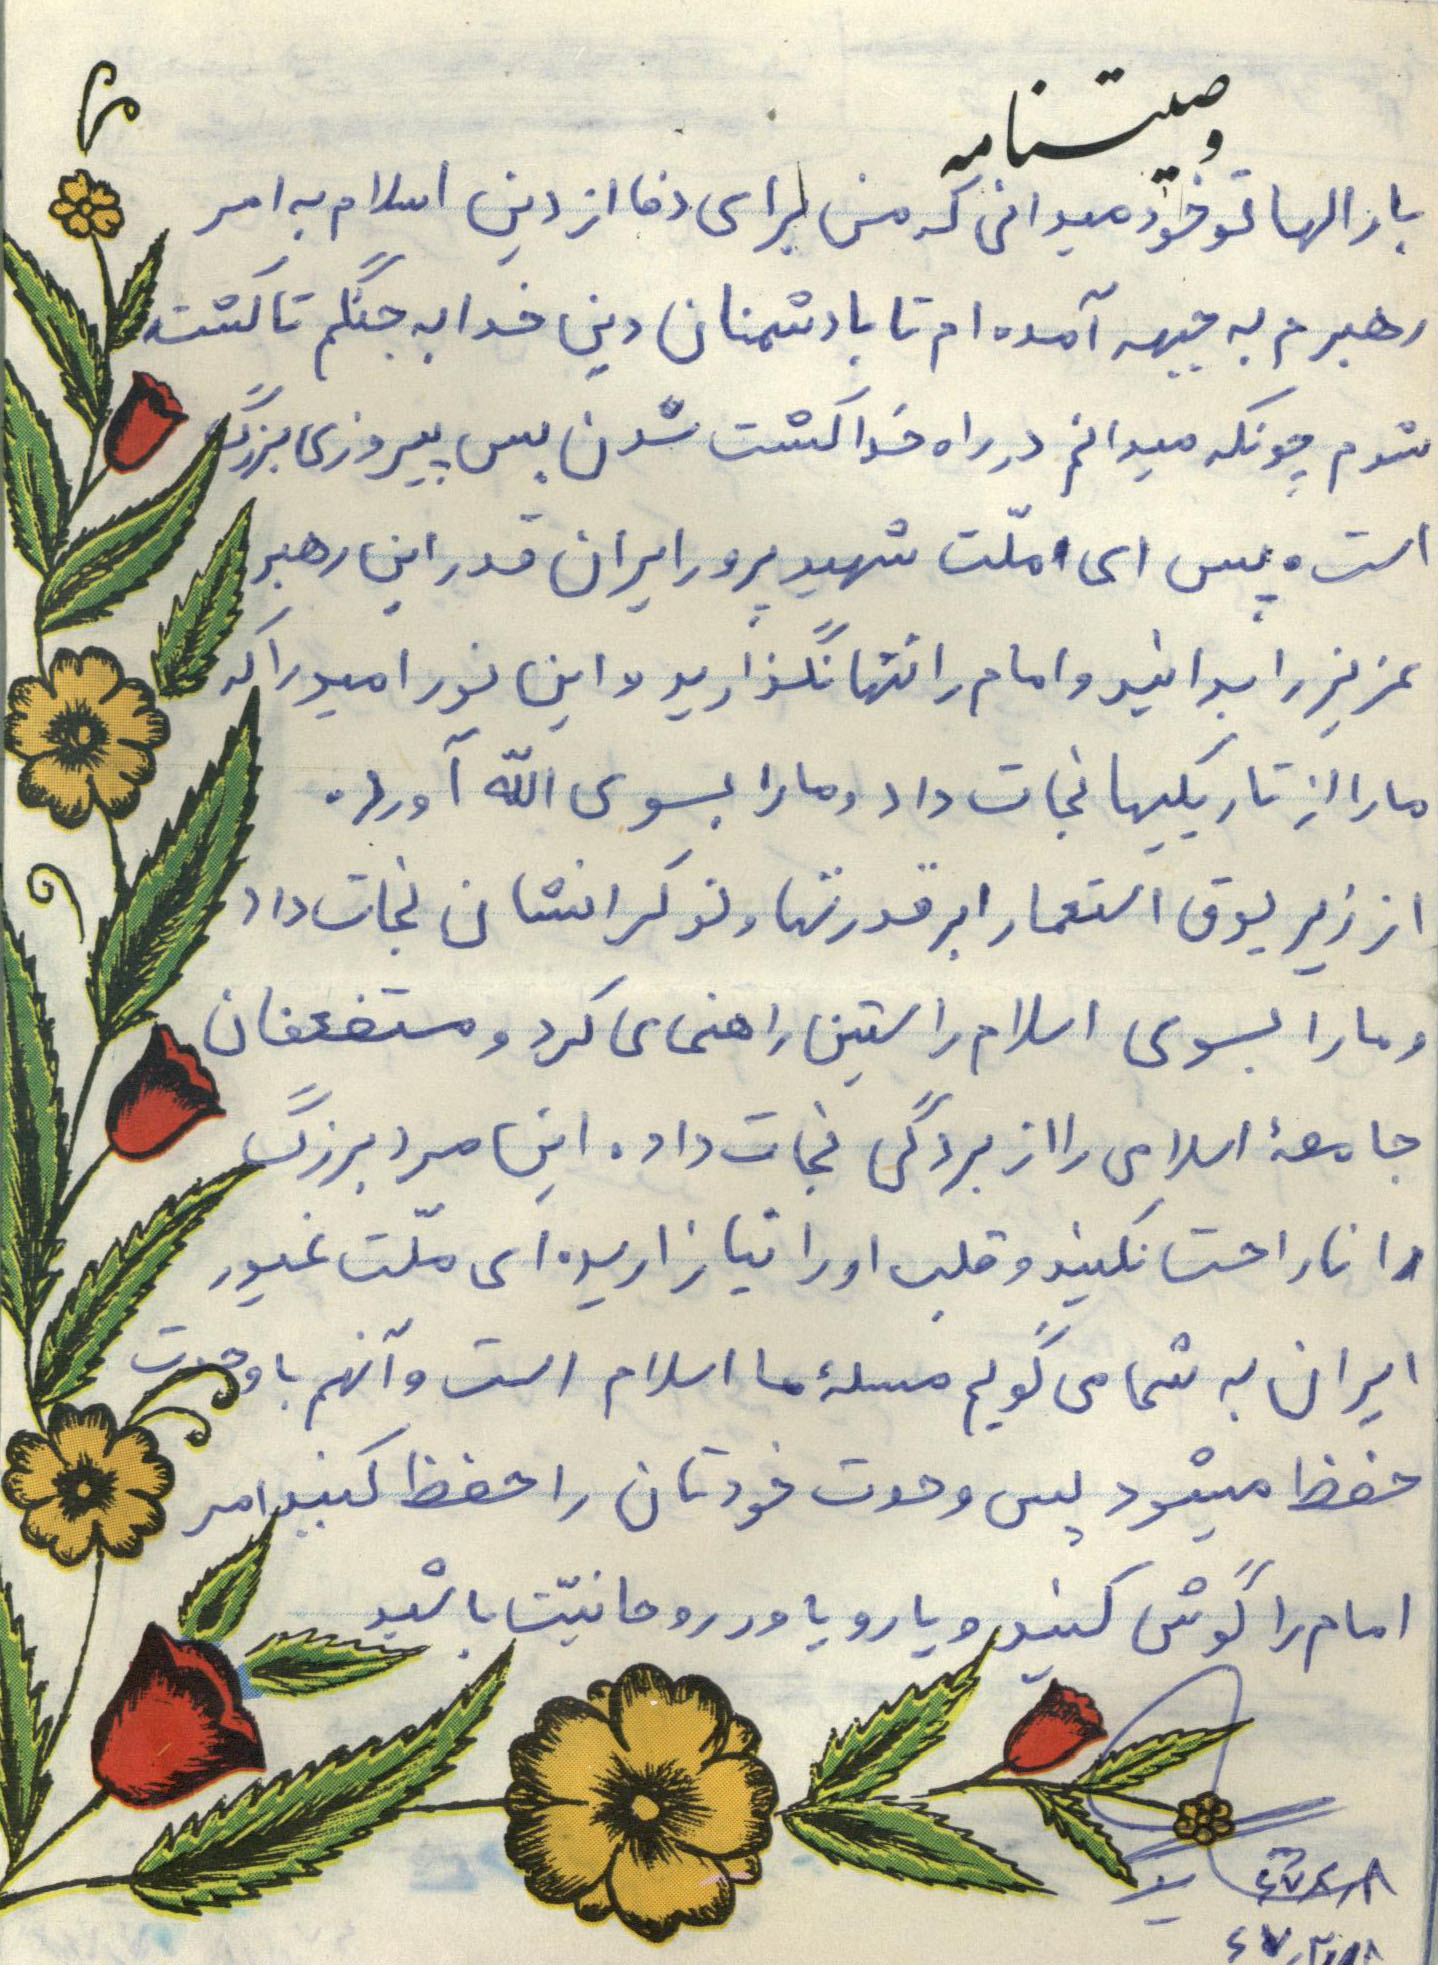 وصیتنامه
بارالها تو خود میدانی که من برای دفا از دین اسلام به امر
رهبرم به جبهه آمده ام تا با دشمنان دین خدا به جنگم تا کشته
شوم چونکه میدانم در راه خدا کشت شدن پس پیروزی بزرگ
است. پس ای ملّت شهید پرور ایران قدر این رهبر
عزیز را بدانید و امام را تنها نگذارید و این نور امید را که
ما را از تاریکیها نجات داد و ما را بسوی اللّه آورد.
از زیر یوق استعمار ابرقدرتها و نوکرانشان نجات داد
و ما را بسوی اسلام راستین راهنمای کرد و مستضعفان
جامعهٔ اسلامی را از بردگی نجات داد. این مرد بزرگ
را ناراحت نکنید و قلب او را نیازارید. ای ملّت غیور
ایران به شما می گویم مسلهٔ ما اسلام است و آنهم با وحدت
حفظ میشود پس وحدت خودتان را حفظ کنید امر
امام را گوش کنید و یار و یاور روحانیّت باشید